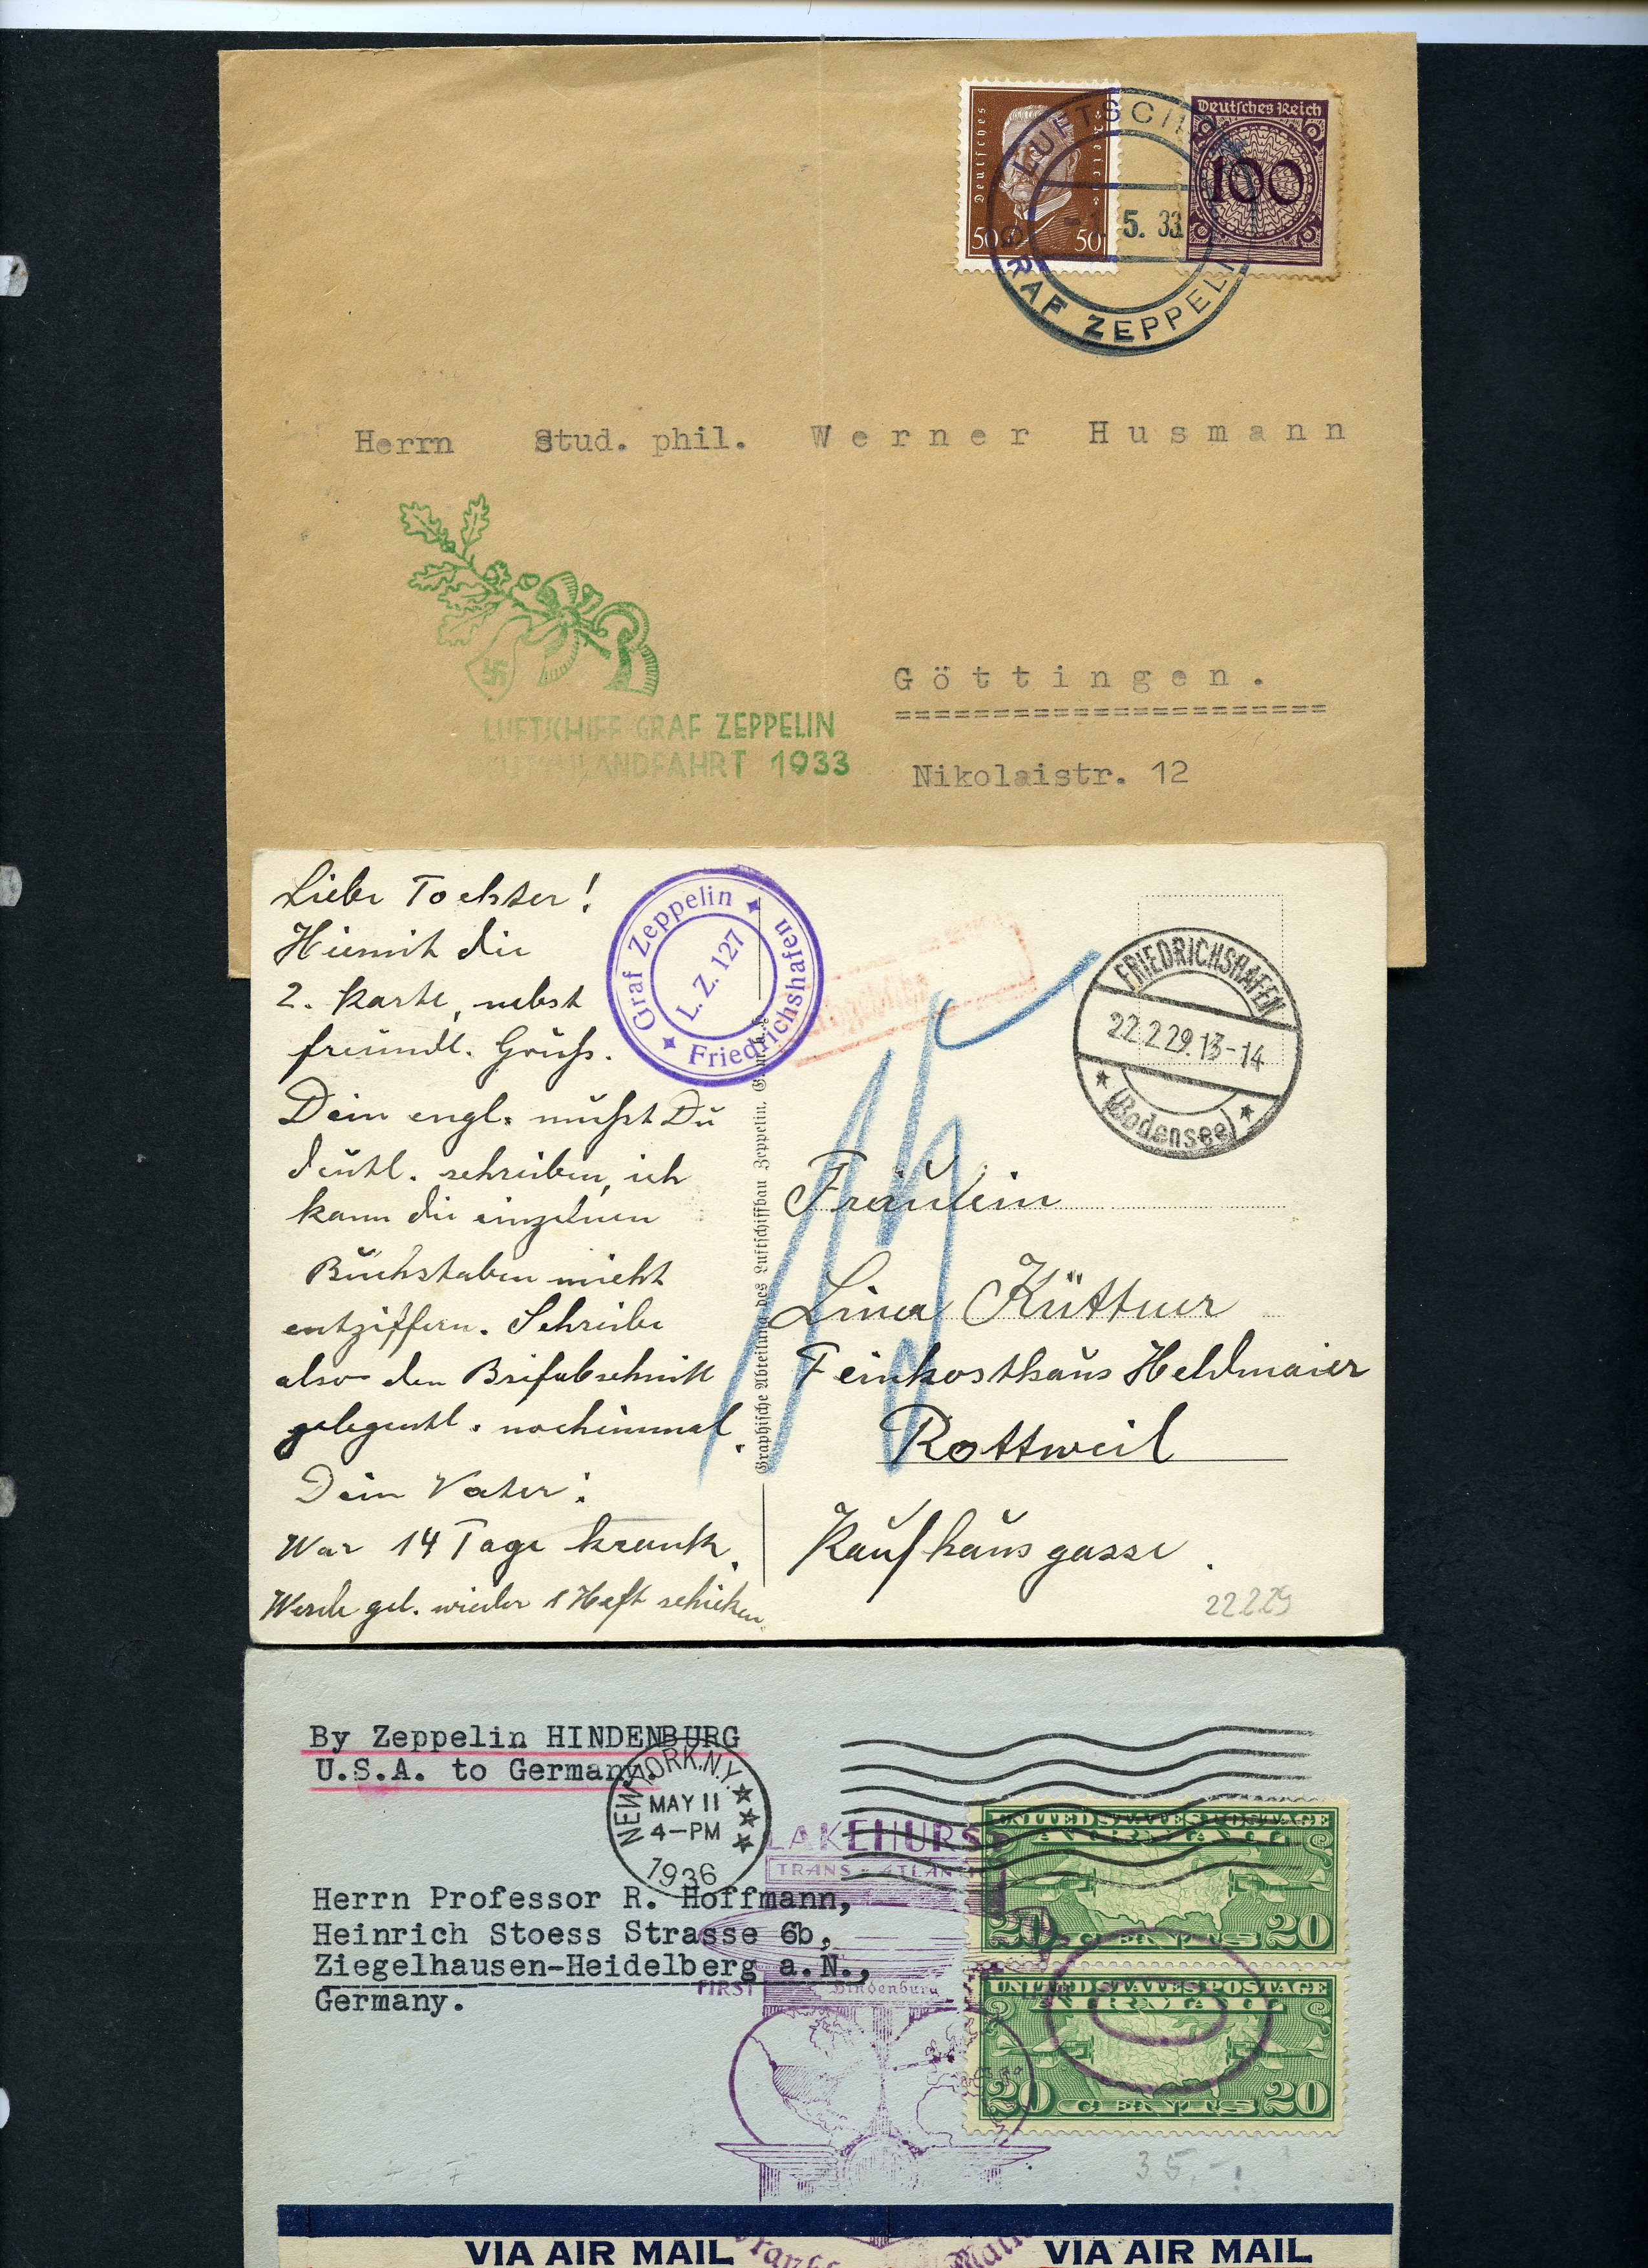 Deutsches Reich
50 50
Deutsches Reich
100
LUFTSCHIFF
5. 33
GRAF ZEPPELIN
Herrn Stud. phil. Werner Husmann
LUFTSCHIFF GRAF ZEPPELIN
DEUTSCHLANDFAHRT 1933
Göttingen.
=======================
Nikolaistr. 12
Liebe Tochter!
Hiemit die
2. Karte, nebst
freundl. Gruß.
Dein engl. mußt Du
deutl. schreiben, ich
kann die einzelnen
Buchstaben nicht
entziffern. Schreibe
also den Brifabschnitt
gelegentl. nocheinmal.
Dein Vater!
War 14 Tage krank.
Werde gel. wieder 1 Heft schicken.
Graf Zeppelin
L. Z. 127
Friedrichshafen
Graphische Abteilung des Luftschiffbau Zeppelin, G.m.b.H.
FRIEDRICHSHAFEN
22.2.29.13-14
(Bodensee)
Fräulein
Lina Küttner
Feinkosthaus Heldmaier
Rottweil
Kaufhausgasse.
22.2.29
By Zeppelin HINDENBURG
U.S.A. to Germany.
NEW YORK, N.Y.
MAY 11
4-PM
1936
LAKEHURST
TRANS-ATLAN
FIRST
Hindenburg
Herrn Professor R. Hoffmann,
Heinrich Stoess Strasse 6b,
Ziegelhausen-Heidelberg a.N.,
Germany.
UNITED STATES POSTAGE
AIR MAIL
20 CENTS 20
UNITED STATES POSTAGE
AIR MAIL
20 CENTS 20
35.-
VIA AIR MAIL
VIA AIR MAIL